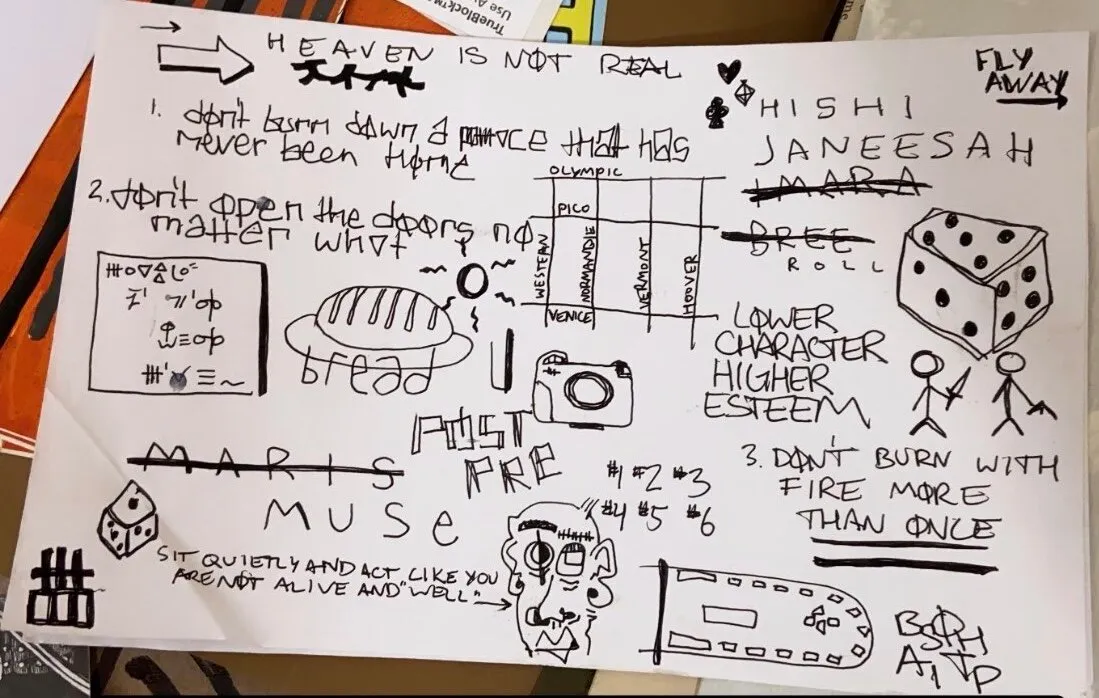 TrueBlock™
Use A
HEAVEN IS NOT REAL
FLY
AWAY
1. don't burn down a that has
never been home
HISHI
JANEESAH
IMARA
BREE
ROLL
2. don't open the doors no
matter what
OLYMPIC
PICO
WESTERN
NORMANDIE
VERMONT
HOOVER
VENICE
bread
LOWER
CHARACTER
HIGHER
ESTEEM
POST
PRE
#1 #2 #3
#4 #5 #6
3. DON'T BURN WITH
FIRE MORE
THAN ONCE
MARIS
MUSe
SIT QUIETLY AND ACT LIKE YOU
ARE NOT ALIVE AND "WELL"